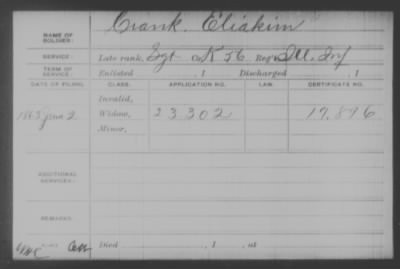 NAME OF SOLDIER: Crank, Eliakim
SERVICE: Late rank, Sgt Co. K 56 Reg't Ill. Inf
TERM OF SERVICE: Enlisted , 1 Discharged , 1
DATE OF FILING. CLASS. APPLICATION NO. LAW. CERTIFICATE NO.
Invalid,
1863 June 2. Widow, 23302 19,896
Minor,
ADDITIONAL SERVICES:
REMARKS:
Died , 1 , at